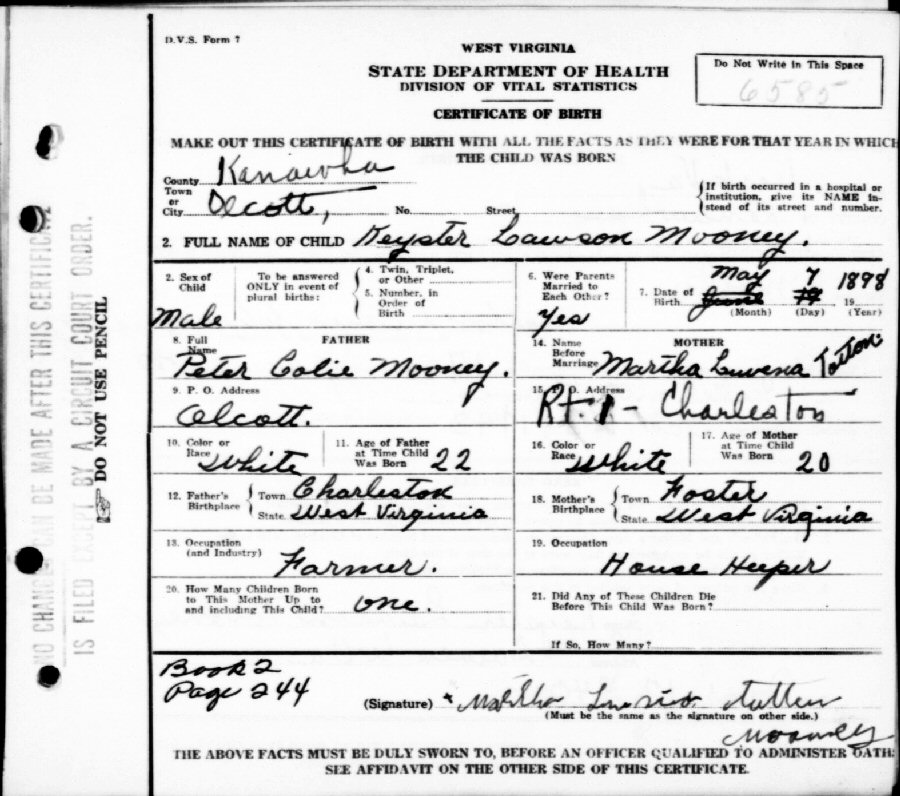 D.V.S. Form 7
WEST VIRGINIA
STATE DEPARTMENT OF HEALTH
DIVISION OF VITAL STATISTICS
CERTIFICATE OF BIRTH
Do Not Write in This Space
6585
MAKE OUT THIS CERTIFICATE OF BIRTH WITH ALL THE FACTS AS THEY WERE FOR THAT YEAR IN WHICH
THE CHILD WAS BORN
County Kanawha
Town or City Olcott, No. Street
If birth occurred in a hospital or institution, give its NAME instead of its street and number.
2. FULL NAME OF CHILD Keyster Lawson Mooney.
2. Sex of Child Male
To be answered ONLY in event of plural births:
4. Twin, Triplet, or Other
5. Number, in Order of Birth
6. Were Parents Married to Each Other? Yes
7. Date of Birth May 7 1898
June 19
(Month) (Day) (Year)
8. Full Name FATHER
Peter Colie Mooney.
14. Name Before Marriage MOTHER
Martha Luvena Totton.
9. P. O. Address
Olcott.
15. P.O. Address
Rt. 1 - Charleston
10. Color or Race White
11. Age of Father at Time Child Was Born 22
16. Color or Race White
17. Age of Mother at Time Child Was Born 20
12. Father's Birthplace Town Charleston
State West Virginia
18. Mother's Birthplace Town Foster
State West Virginia
13. Occupation (and Industry) Farmer.
19. Occupation
House Keeper
20. How Many Children Born to This Mother Up to and including This Child? one.
21. Did Any of These Children Die Before This Child Was Born?
If So, How Many?
Book 2
Page 244
(Signature) x Martha
Mooney
(Must be the same as the signature on other side.)
THE ABOVE FACTS MUST BE DULY SWORN TO, BEFORE AN OFFICER QUALIFIED TO ADMINISTER OATH:
SEE AFFIDAVIT ON THE OTHER SIDE OF THIS CERTIFICATE.
NO CHANGE CAN BE MADE AFTER THIS CERTIFICATE
IS FILED EXCEPT BY A CIRCUIT COURT ORDER.
DO NOT USE PENCIL